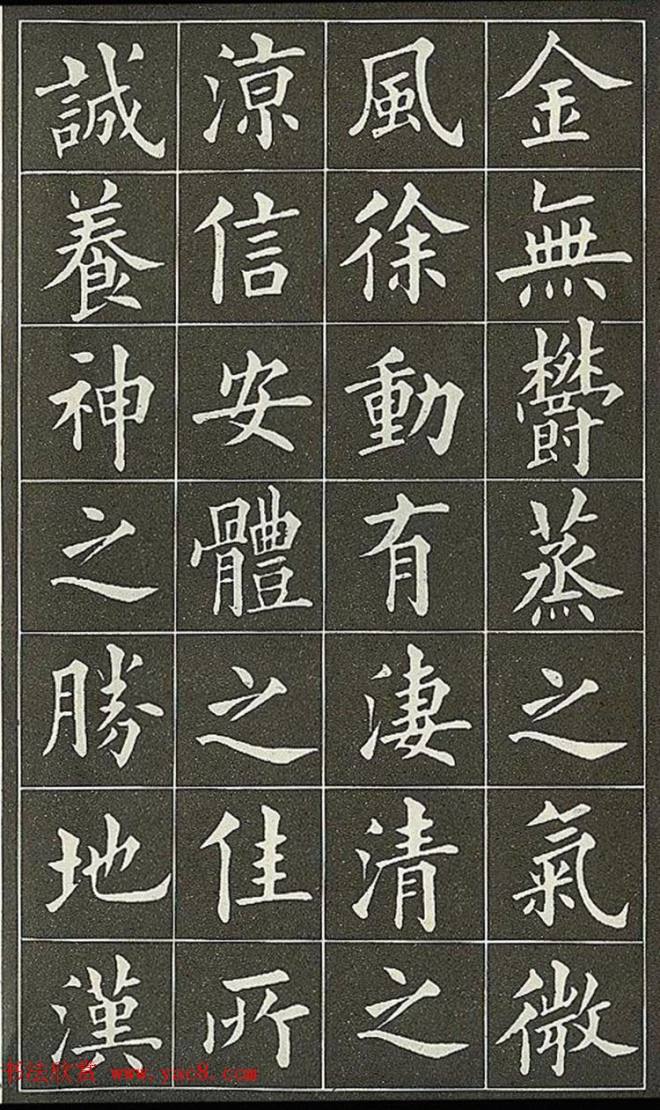 金無欝蒸之氣微
風徐動有淒清之
涼信安體之佳所
誠養神之勝地漢
书法欣赏 www.yac8.com